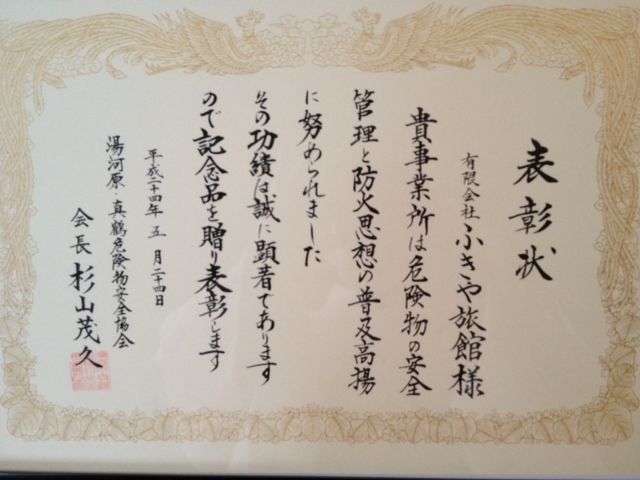 表彰状
有限会社 ふきや旅館様
貴事業所は危険物の安全
管理と防火思想の普及高揚
に努められました
その功績は誠に顕著であります
ので記念品を贈り表彰します
平成二十四年 五 月二十四日
湯河原・真鶴危険物安全協会
会長 杉山茂久